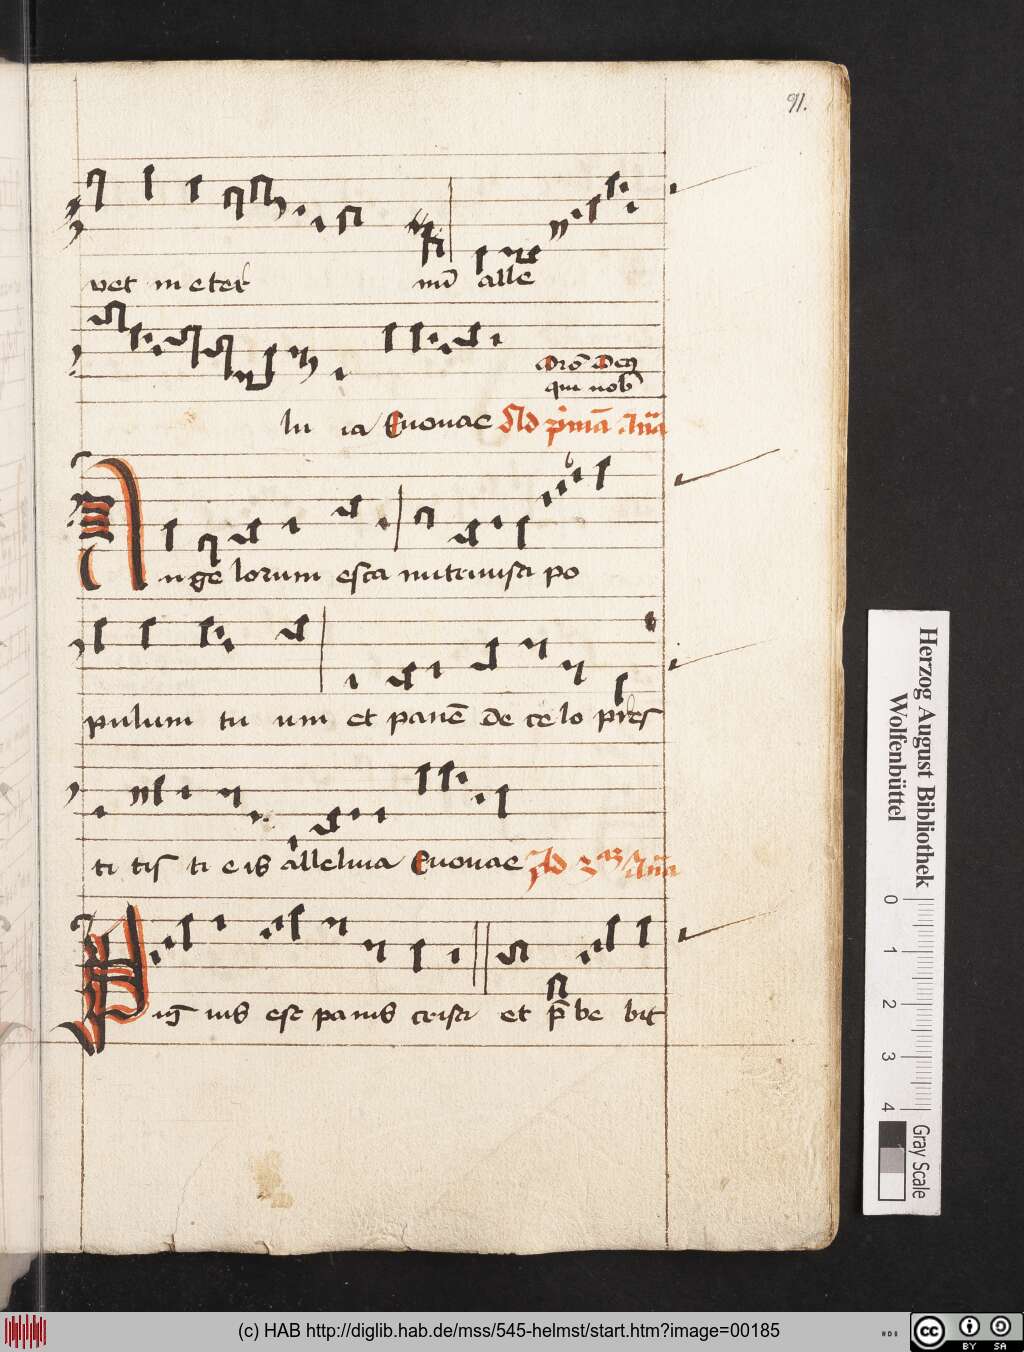 91.
vet in eter nū alle
Oro Deꝰ
qui nob
lu ia Euouae Ad primā Anna
Angelorum esca nutriuisti po
pulum tu um et panē de celo pres
ti tis ti eis alleluia Euouae Ad 3am Anna
Pigwis est panis cristi et p̄be bit
Herzog August Bibliothek
Wolfenbüttel
0 1 2 3 4
Gray Scale
(c) HAB http://diglib.hab.de/mss/545-helmst/start.htm?image=00185
cc BY SA